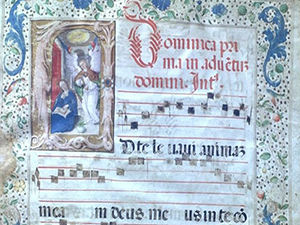 Dominica pri
ma in aduētus
domini Intꝰ.
D te leuaui animaʒ
meam deus meus in te cō